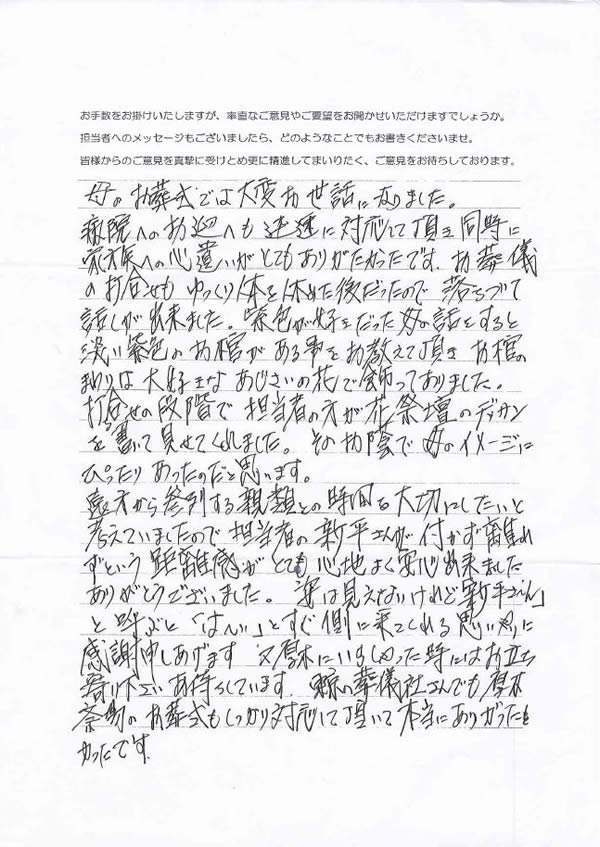 お手数をお掛けいたしますが、率直なご意見やご要望をお聞かせいただけますでしょうか。
担当者へのメッセージもございましたら、どのようなことでもお書きくださいませ。
皆様からのご意見を真摯に受けとめ更に精進してまいりたく、ご意見をお待ちしております。
母のお葬式では大変お世話になりました。
病院へのお迎へも迅速に対応して頂き同時に
家族への心遣いがとてもありがたかったです。お葬儀
の打合せも ゆっくり体を休めた後だったので 落ちづいて
話しが出来ました。紫色が好きだった母の話をすると
淡い紫色のお棺がある事をお教えて頂き お棺の
まわりは大好きな あじさいの花で飾っておりました。
打合せの段階で 担当者の方が花祭壇のデッサン
を書いて見せてくれました。そのお陰で母のイメージに
ぴったりあったのだと思います。
遠方から参列する親類との時間を大切にしたいと
考えていましたので 担当者の新平さんが 付かず離れ
ずという 距離感が とても 心地よく安心出来ました
ありがとうございました。姿は見えないけれど「新平さん」
と呼ぶと「はーい」とすぐ側に来てくれる思いやりに
感謝申しあげます 又厚木にいらしゃった時にはお立ち
寄り下さい お待ちしています。 の葬儀社さんでも厚木
斎場のお葬式もしっかり対応して頂いて本当にありがったた
かったです。